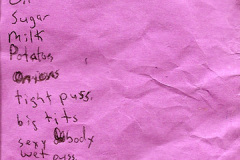 Oil
Sugar
Milk
Potatoes
Onions
tight puss.
big tits
sexy body
wet puss.